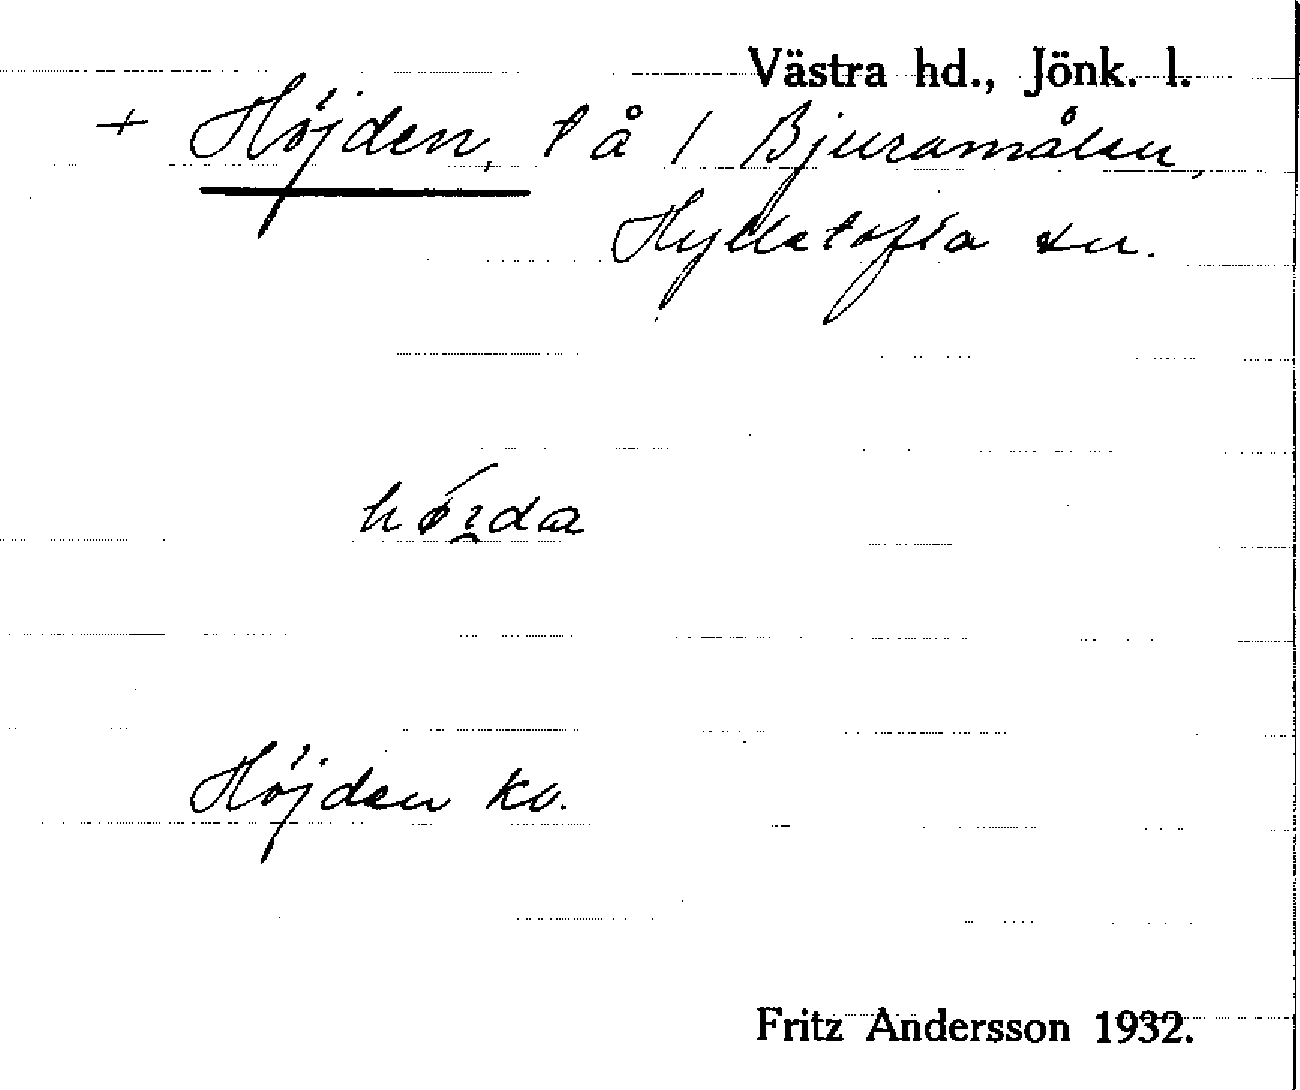 Västra hd., Jönk. l.
+ Höjden, t å 1 Bjuramålen,
Hylletofta sn.
Höjden kv.
Fritz Andersson 1932.